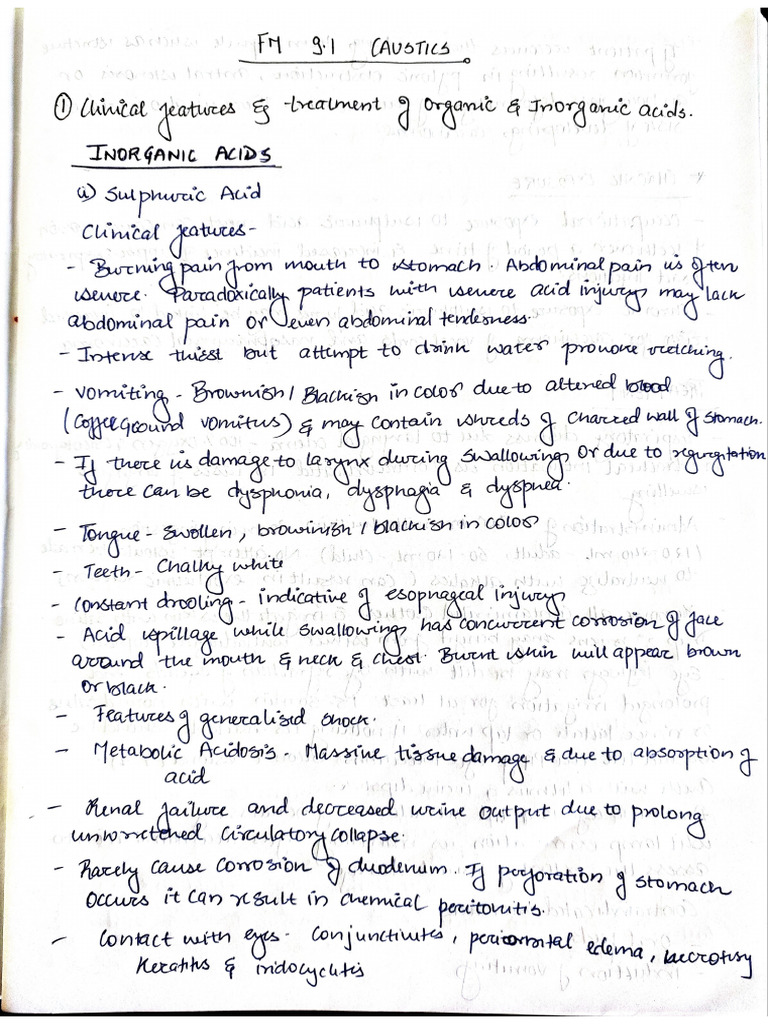 FM 9.1 CAUSTICS
① Clinical features & treatment of Organic & Inorganic acids.
INORGANIC ACIDS
a) Sulphuric Acid
Clinical features-
- Burning pain from mouth to stomach. Abdominal pain is often
severe. Paradoxically patients with severe acid injury may lack
abdominal pain or even abdominal tenderness.
- Intense thirst but attempt to drink water provove retching.
- vomiting - Brownish / Blackish in color due to altered blood
(Coffee ground vomitus) & may contain shreds of charred wall of stomach.
- If there is damage to larynx during swallowing or due to regurgitation
there can be dysphonia, dysphagia & dyspnea.
- Tongue - Swollen, browinish / blackish in color
- Teeth - Chalky white
- constant drooling - indicative of esopnageal injury
- Acid spillage while swallowing has concurrent corrosion of face
around the mouth & neck & chest. Burnt skin will appear brown
or black.
- Features of generalised shock.
- Metabolic Acidosis - Massive tissue damage & due to absorption of
acid
- Renal failure and decreased urine output due to prolong
circulatory collapse.
- Rarely cause corrosion of duodenum. If perforation of stomach
occurs it can result in chemical peritonitis.
- contact with eyes - conjunctivites, edema,
Keratitis & iridocyclitis